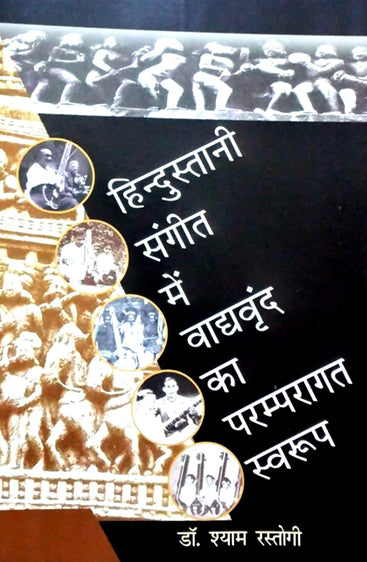 हिन्दुस्तानी
संगीत
में
वाद्यवृंद
का
परम्परागत
स्वरूप
डॉ. श्याम रस्तोगी